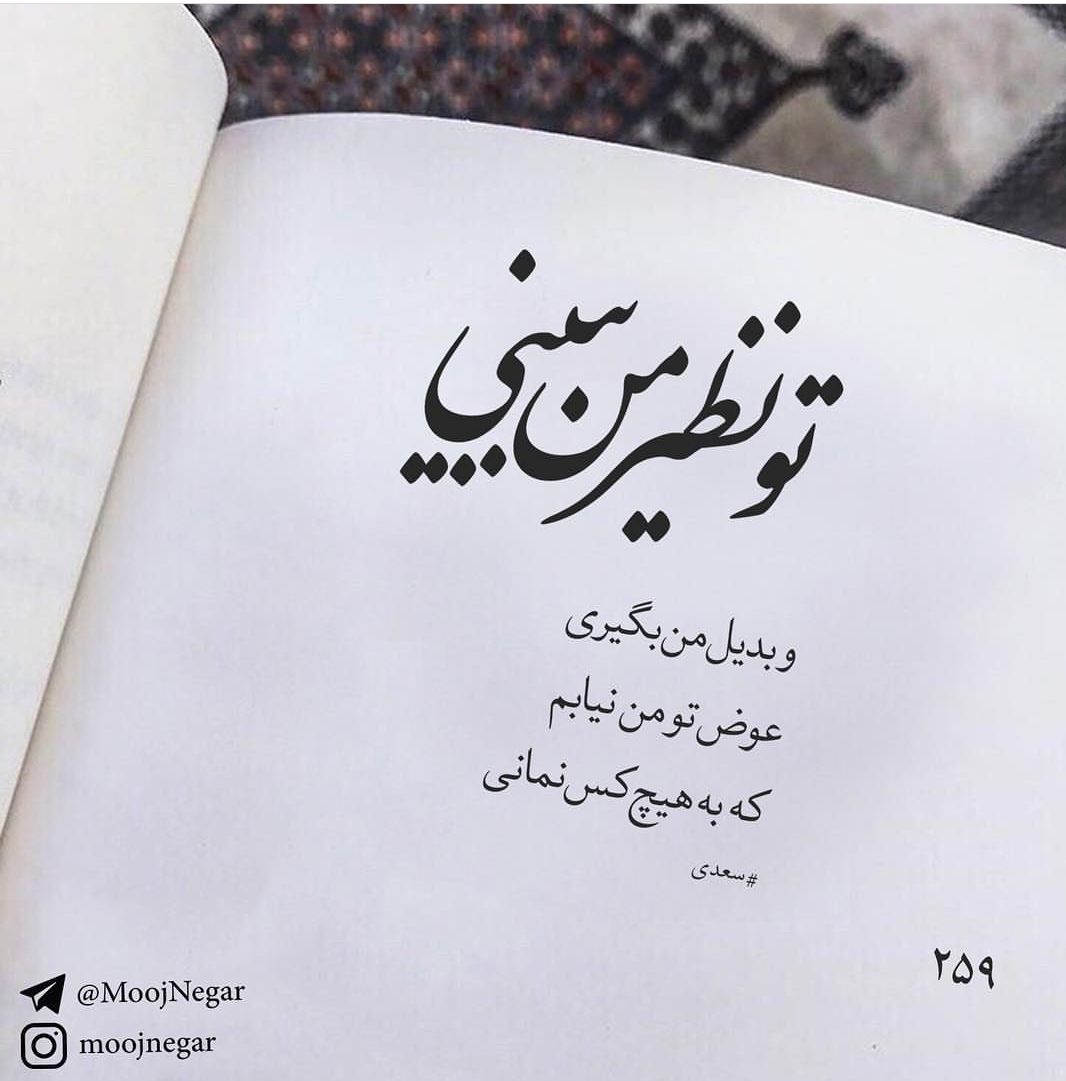 تو نظیر من ببینی
و بدیل من بگیری
عوض تو من نیابم
که به هیچ کس نمانی
#سعدی
۲۵۹
@MoojNegar
moojnegar